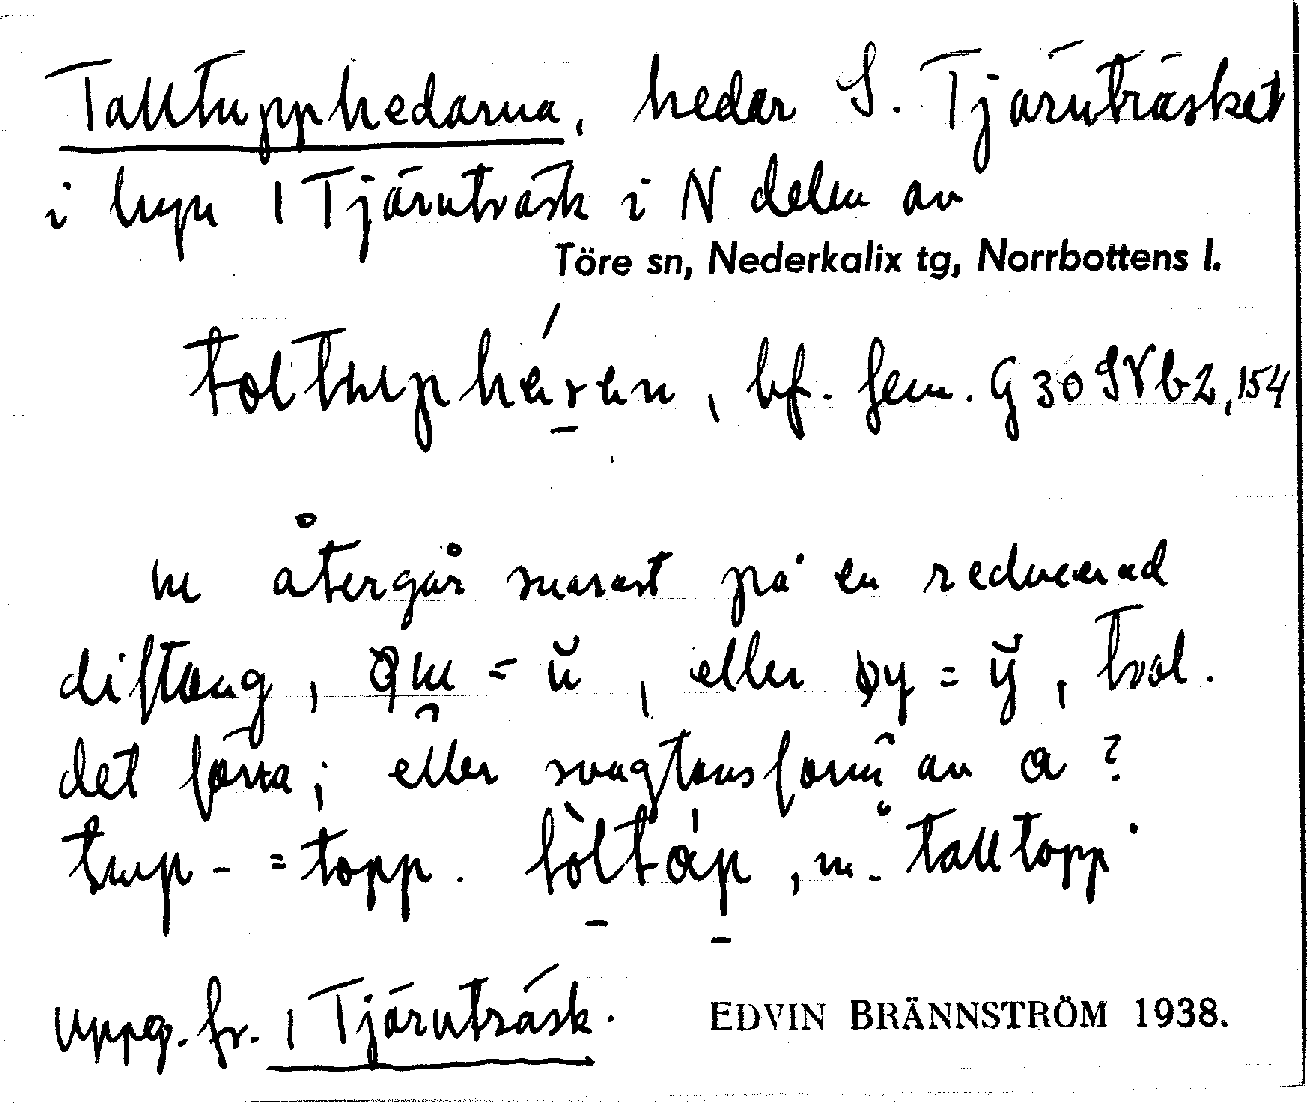 Talltupphedarna, hedar S. Tjärnträsket
i byn 1 Tjärnträsk i N delen av
Töre sn, Nederkalix tg, Norrbottens l.
bf. fem. G 30
m återgår snarast på en reducerad
diftong, = ŭ, eller = y̆, trol.
det förra; eller svagtonsform av a?
= topp. m. "talltopp"
Uppg. fr. 1 Tjärnträsk.
EDVIN BRÄNNSTRÖM 1938.